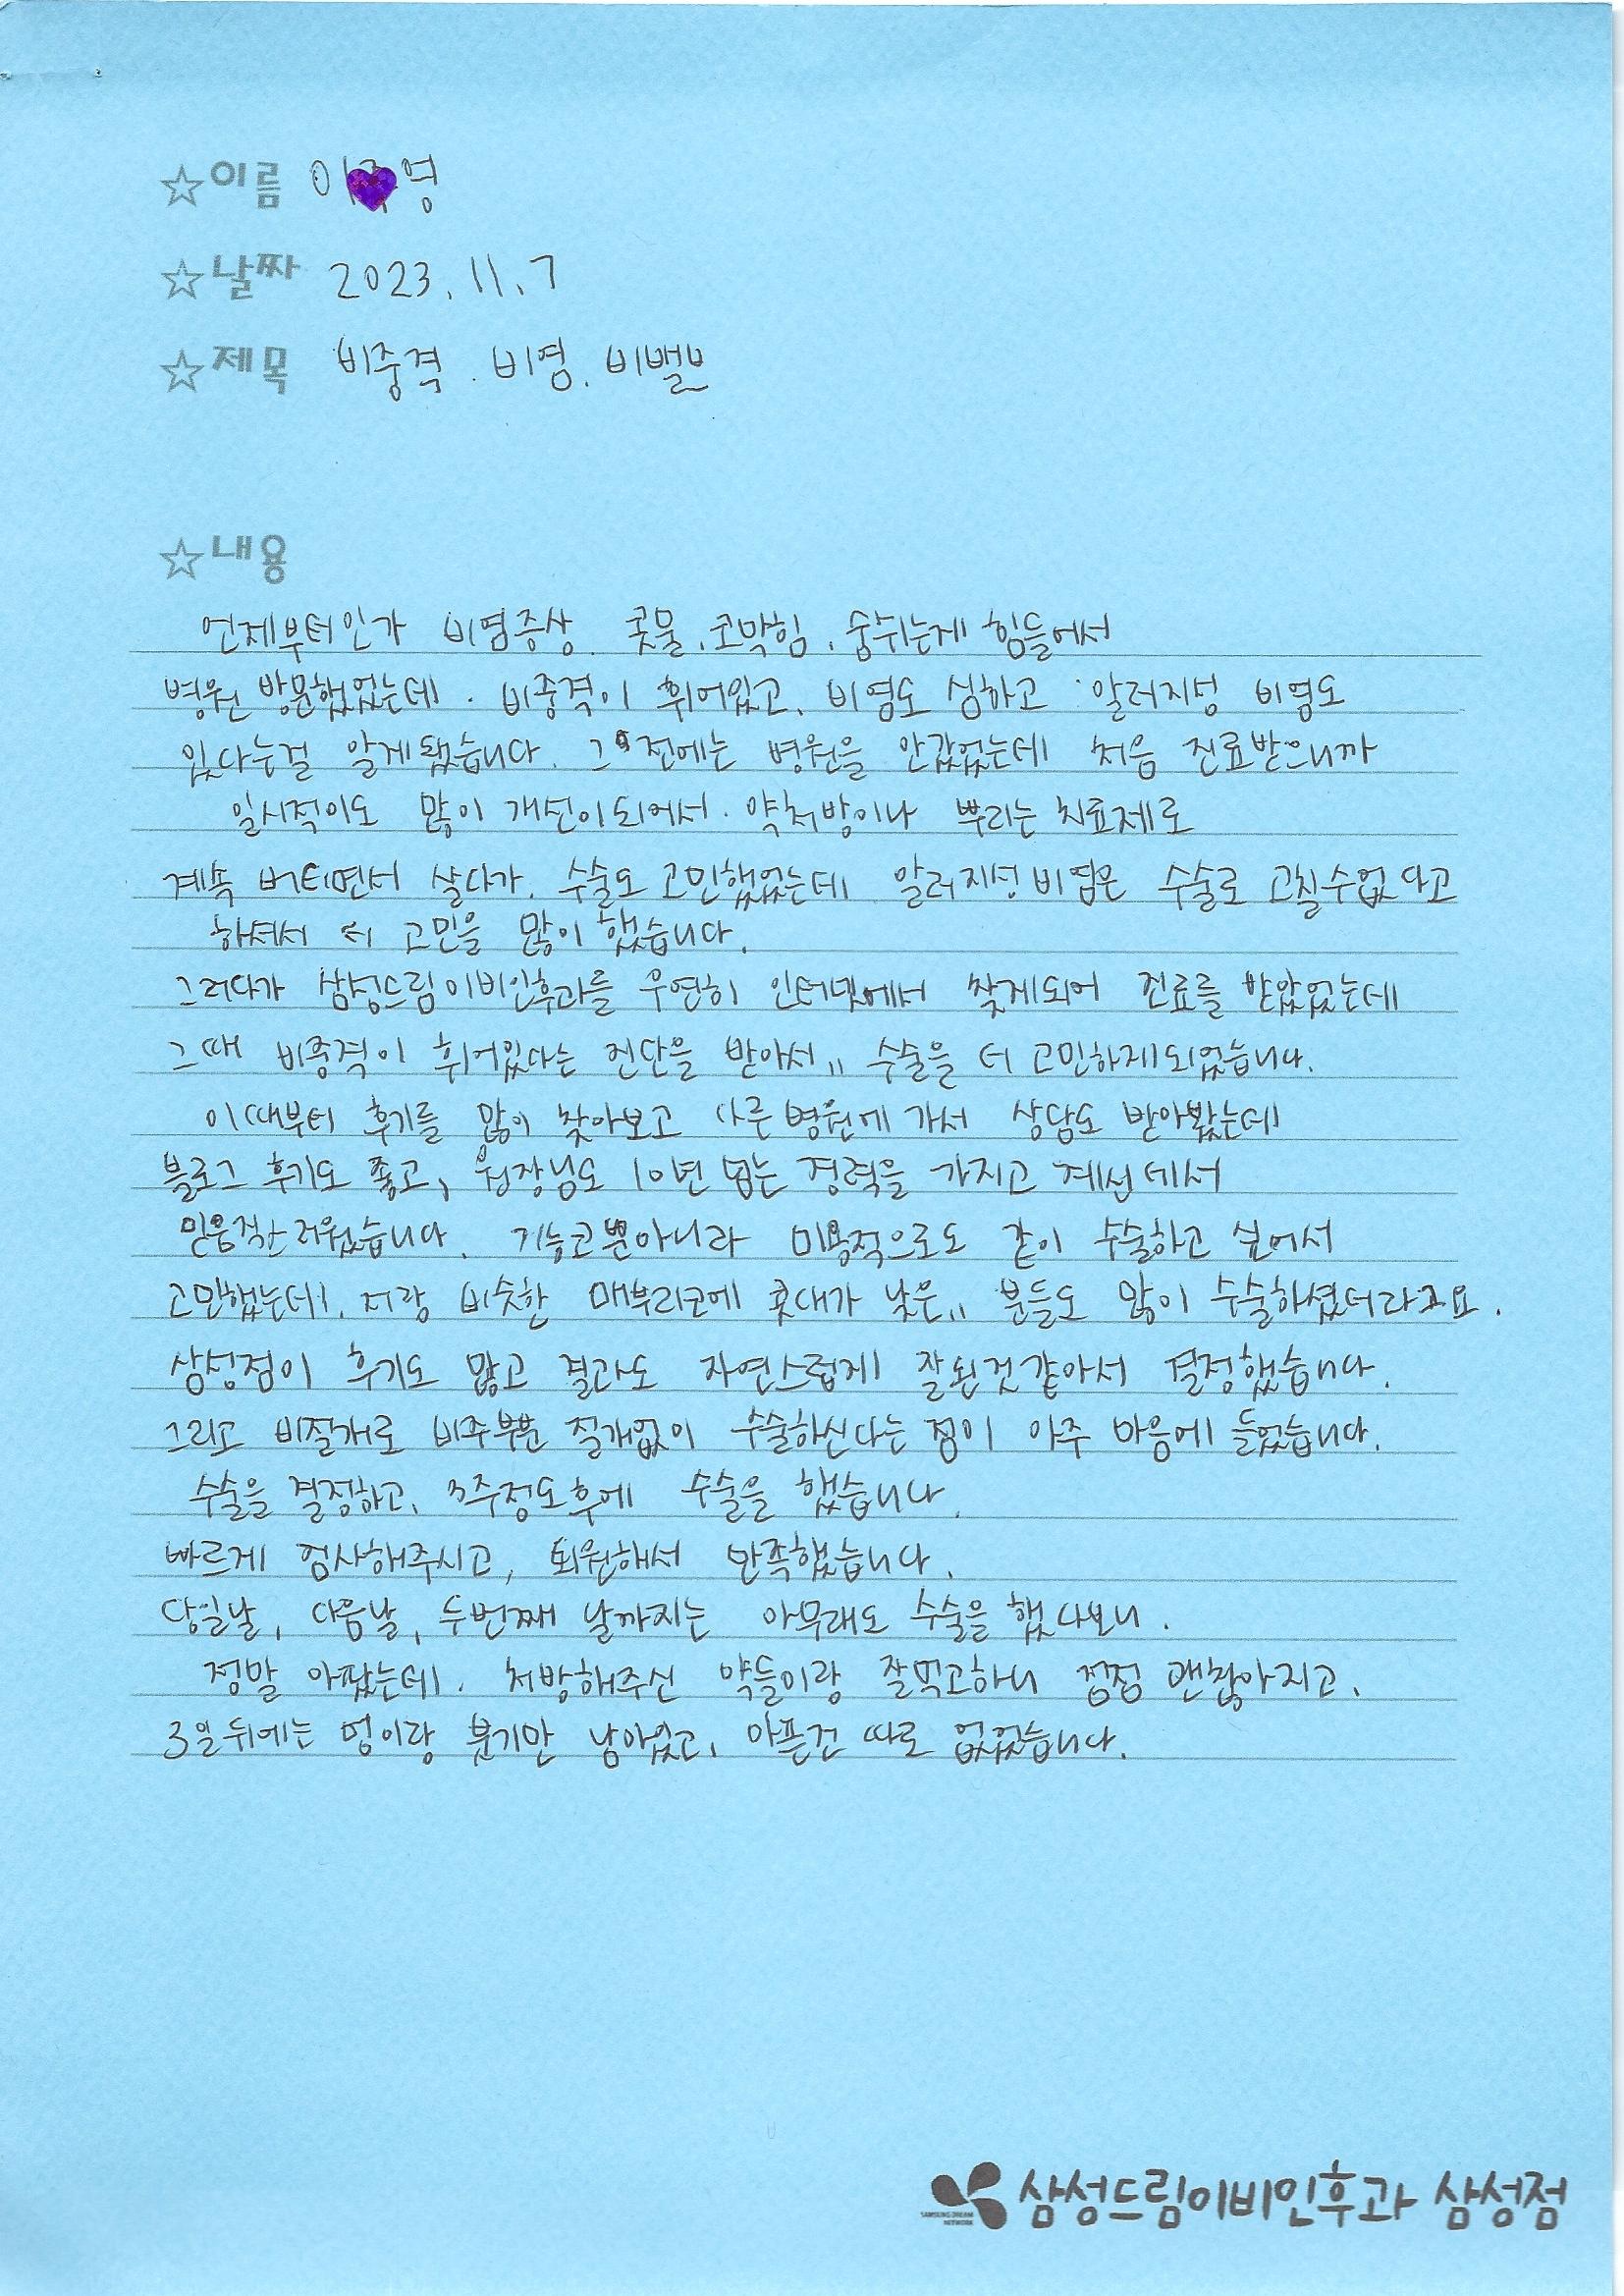 ☆이름 이 영
☆날짜 2023. 11. 7
☆제목 비중격. 비염. 비밸브
☆내용
언제부터인가 비염증상. 콧물.코막힘. 숨쉬는게 힘들어서
병원 방문했었는데. 비중격이 휘어있고, 비염도 심하고 알러지성 비염도
있다는걸 알게됐습니다. 그 전에는 병원을 안갔었는데 처음 진료받으니까
일시적이도 많이 개선이되어서. 약처방이나 뿌리는 치료제로
계속 버티면서 살다가. 수술도 고민했었는데 알러지성비염은 수술로 고칠수없다고
하셔서 더 고민을 많이 했습니다.
그러다가 삼성드림이비인후과를 우연히 인터넷에서 찾게되어 진료를 받았었는데
그때 비중격이 휘어있다는 진단을 받아서,, 수술을 더 고민하게되었습니다.
이때부터 후기를 많이 찾아보고 다른병원에 가서 상담도 받아봤는데
블로그 후기도 좋고, 원장님도 10년 넘는 경력을 가지고 계선데서
믿음직스러웠습니다. 기능코뿐아니라 미용적으로도 같이 수술하고 싶어서
고민했는데. 저랑 비슷한 매부리코에 콧대가 낮은,, 분들도 많이 수술하셨더라고요.
삼성점이 후기도 많고 결과도 자연스럽게 잘된것같아서 결정했습니다.
그리고 비절개로 비주부분 절개없이 수술하신다는 점이 아주 마음에 들었습니다.
수술을 결정하고, 3주정도후에 수술을 했습니다.
빠르게 검사해주시고, 퇴원해서 만족했습니다.
당일날, 다음날, 두번째 날까지는 아무래도 수술을 했다보니.
정말 아팠는데. 처방해주신 약들이랑 잘먹고하니 점점 괜찮아지고.
3일뒤에는 멍이랑 붓기만 남아있고, 아픈건 따로 없었습니다.
SAMSUNG DREAM
NETWORK
삼성드림이비인후과 삼성점